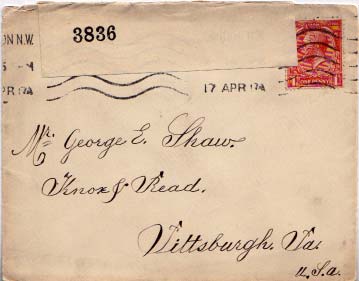 ON N.W.
3836
APR 17A
17 APR 17A
ONE PENNY
Mr. George E. Shaw.
Knox & Read.
Pittsburgh. Pa.
U.S.a.